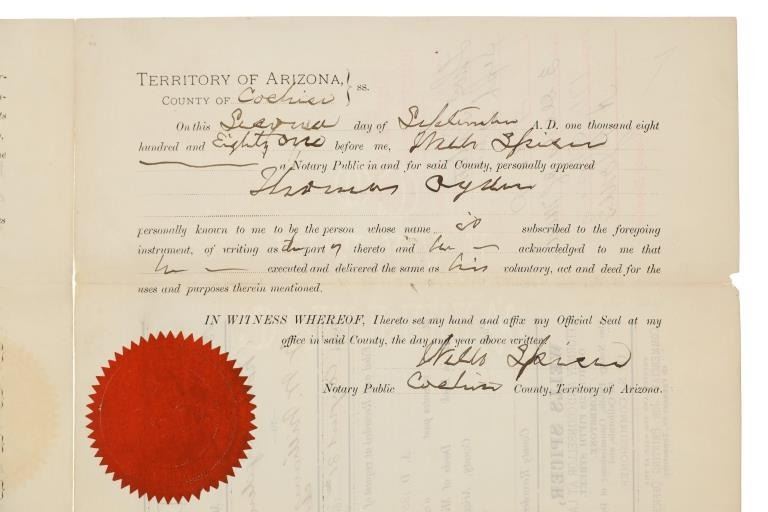 TERRITORY OF ARIZONA, } ss.
COUNTY OF Cochise
On this Second day of September A. D. one thousand eight
hundred and Eighty one before me, Wells Spicer
a Notary Public in and for said County, personally appeared
Thomas Ogden
personally known to me to be the person whose name is subscribed to the foregoing
instrument, of writing as the part y thereto and he acknowledged to me that
he executed and delivered the same as his voluntary, act and deed for the
uses and purposes therein mentioned.
IN WITNESS WHEREOF, I hereto set my hand and affix my Official Seal at my
office in said County, the day and year above written.
Wells Spicer
Notary Public Cochise County, Territory of Arizona.